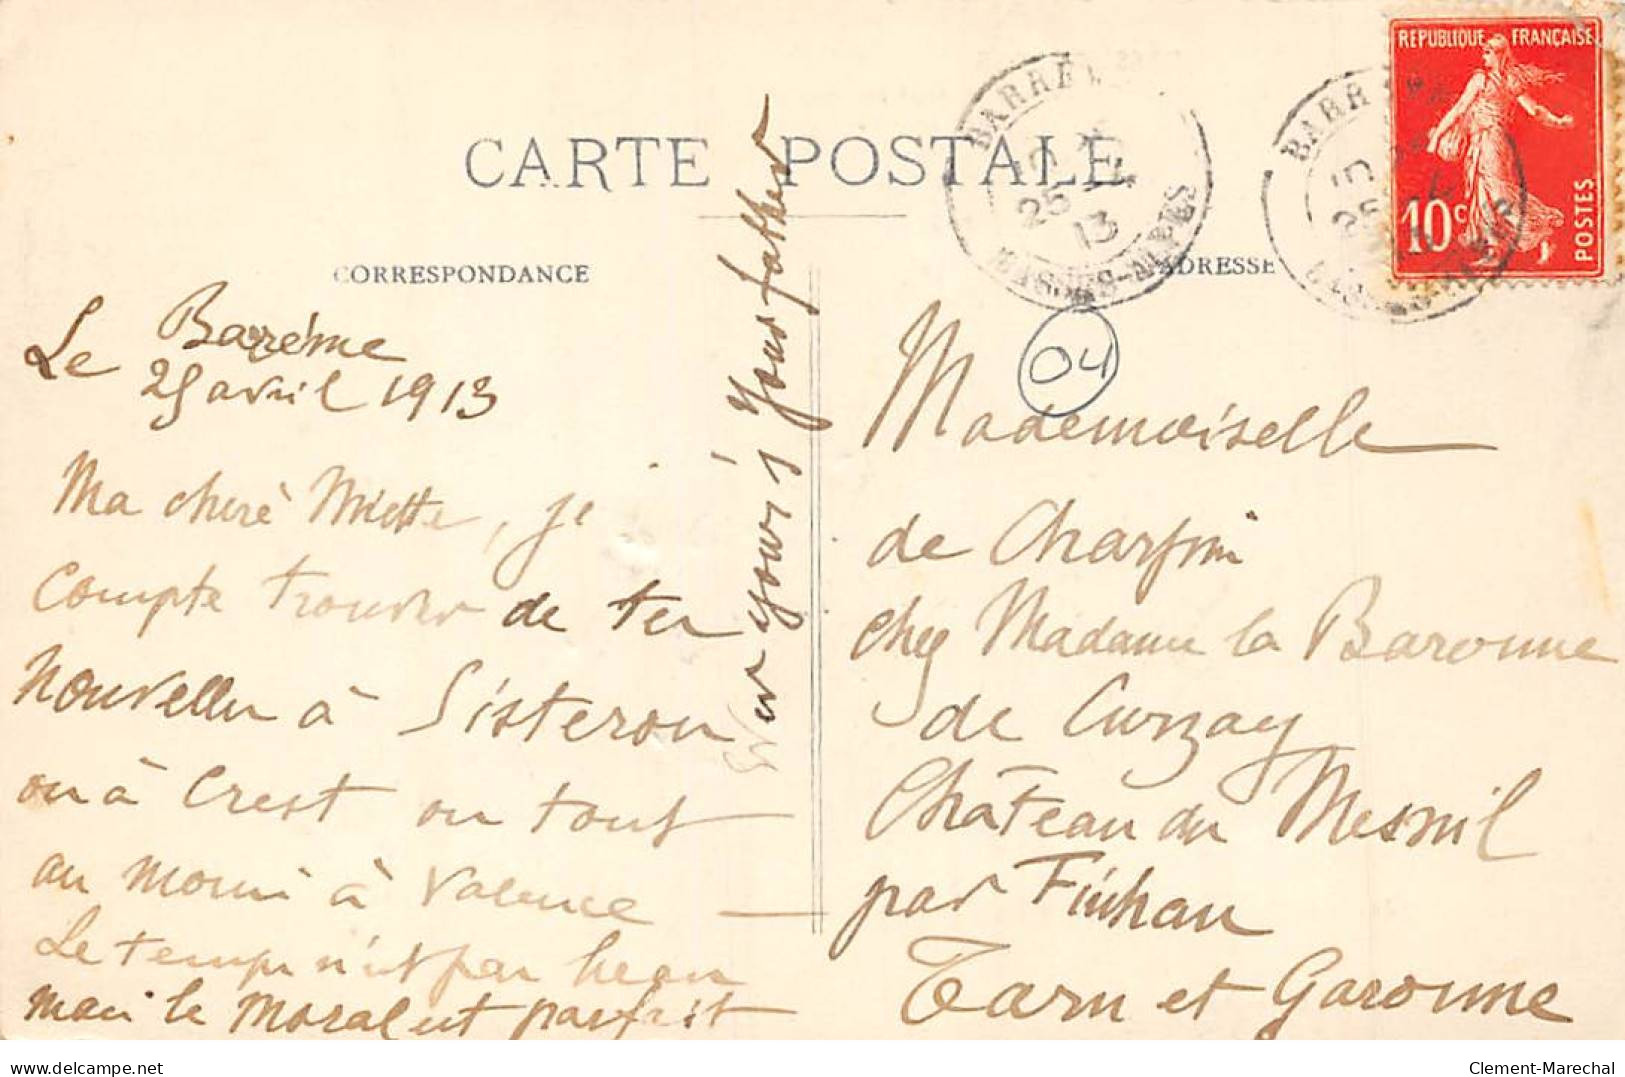 CARTE POSTALE
CORRESPONDANCE
ADRESSE
REPUBLIQUE FRANÇAISE
10c
POSTES
BARRÊME
25
13
BASSES-ALPES
04
Barrême
Le 25 avril 1913
Ma chère Miette, je
compte trouver de tes
nouvelles à Sisteron
ou à Crest ou tout
au moins à Valence
Le temps n'est pas beau
mais le moral est parfait
Ver yours' your father
Mademoiselle
de
chez Madame la Baronne
de Curzay
Château du Mesnil
par Finhan
Tarn et Garonne
delcampe.net
Clement-Marechal